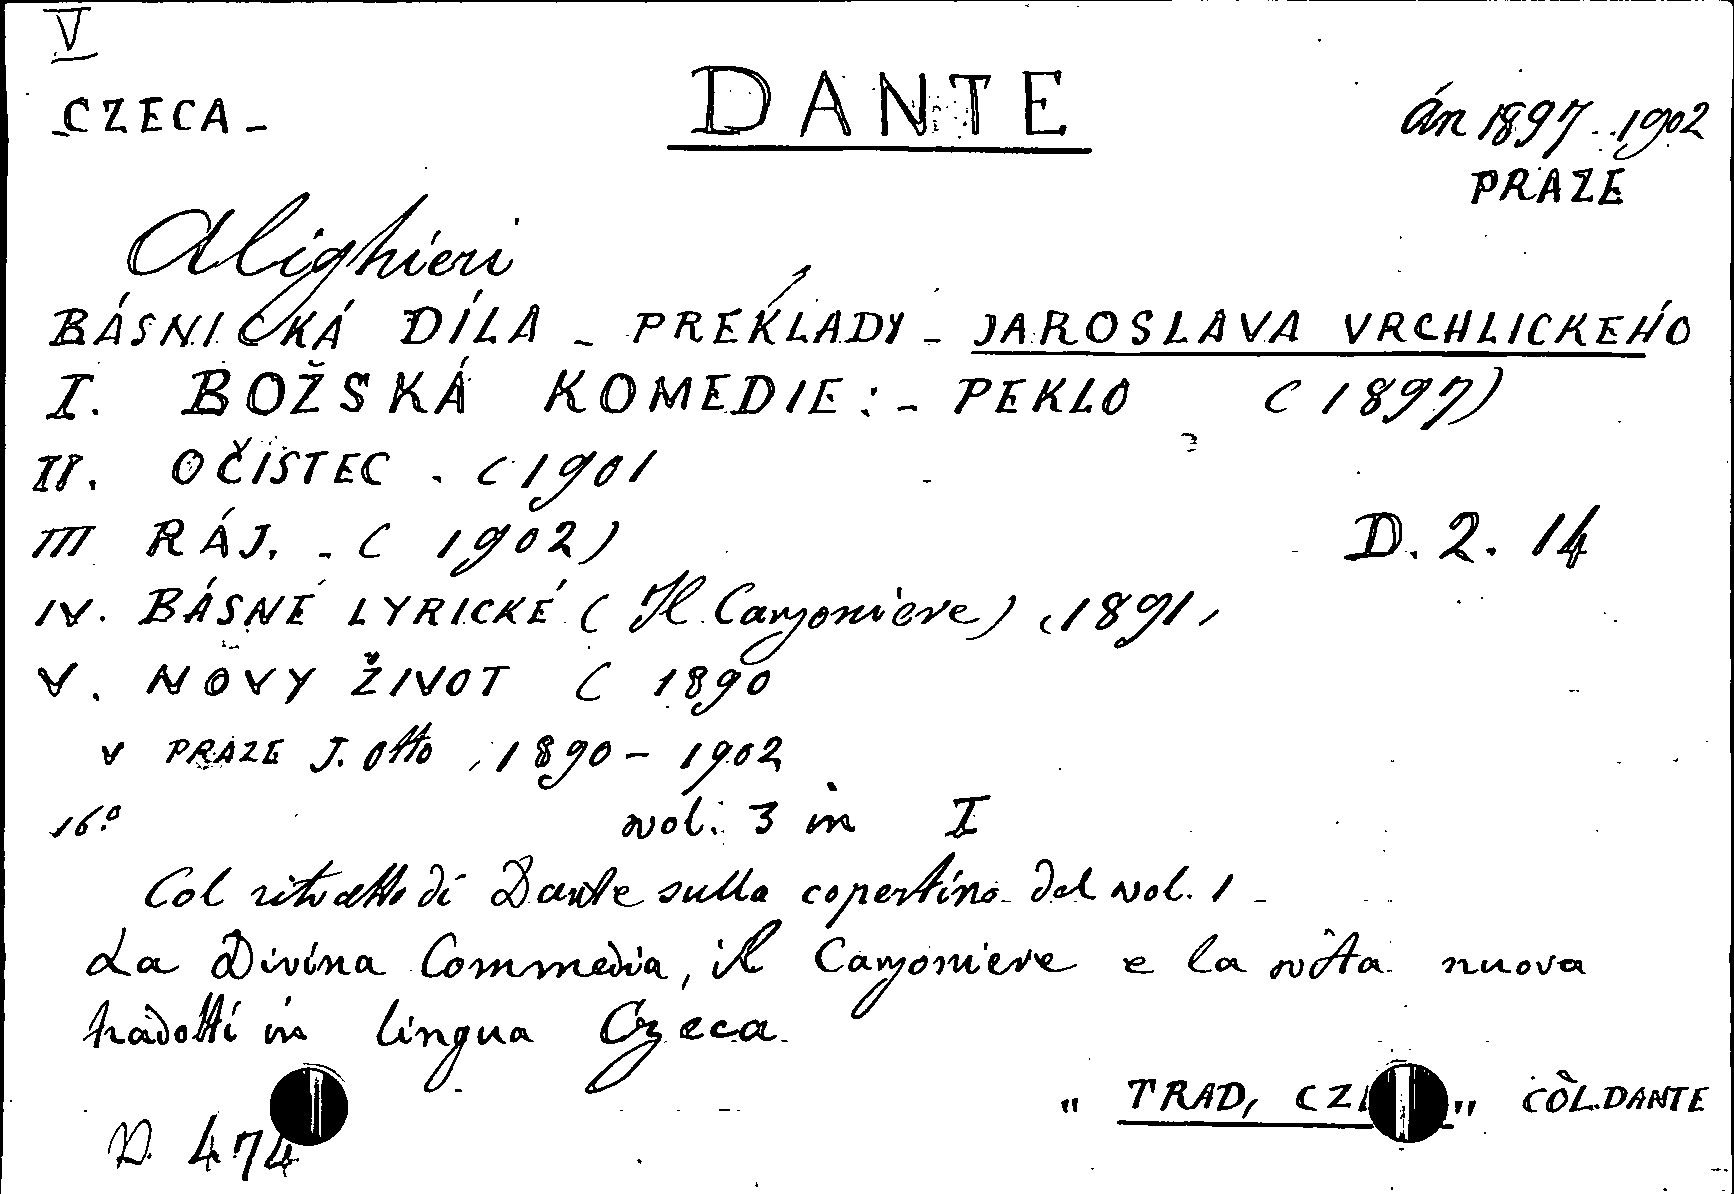 V
_CZECA_
DANTE
án 1897..1902
PRAZE
Alighieri
BÁSNICKÁ DÍLA - PREKLADY - JAROSLAVA VRCHLICKEHO
I. BOŽSKÁ KOMEDIE: - PEKLO (1897)
II. OČISTEC . (1901
III RÁJ. - (1902)
D. 2. 14
IV. BÁSNÉ LYRICKÉ (Il Canzoniere) (1891,
V. NOVY ŽIVOT ( 1890
V PRAZE J. Otto , 1890 - 1902
16.º vol. 3 in I
Col ritratto di Dante sulla copertina del vol. 1
La Divina Commedia, il Canzoniere e la vita nuova
tradotti in lingua Czeca
" TRAD, CZ " COL.DANTE
N. 474